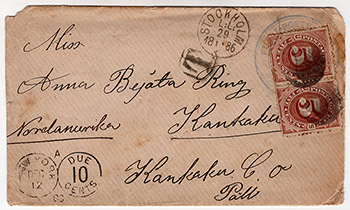 Miss
Anna Bejäta Ring
Nordamerika Kankakee
Kankakee C.o
Jall
STOCKHOLM
L.L.
29
11 86
T
5
5
NEW YORK
DEC
12
86
A
DUE
10
CENTS.